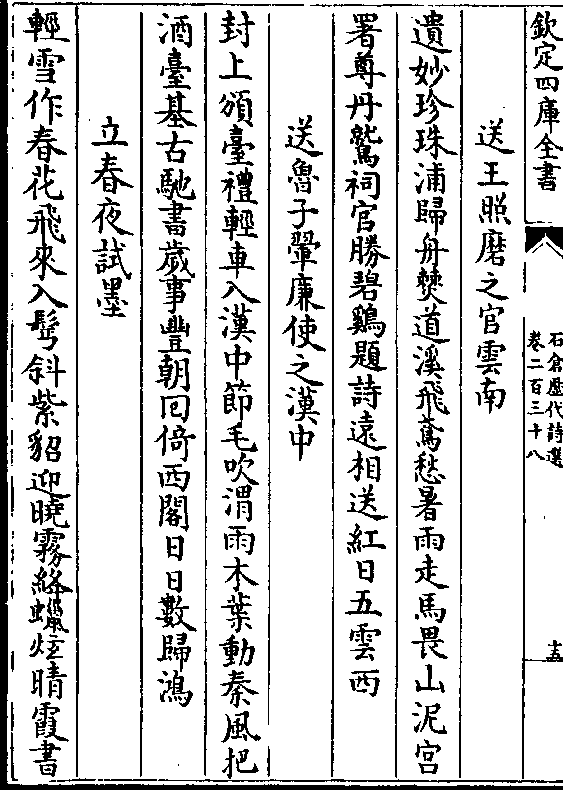 欽定四庫全書
石倉歷代詩選
卷二百三十八
十五
送王照磨之官雲南
遺妙珍珠浦歸舟僰道溪飛鳶愁暑雨走馬畏山泥宫
署尊丹鷲祠官勝碧鷄題詩遠相送紅日五雲西
送魯子翬廉使之漢中
封上頒臺禮輕車入漢中節毛吹渭雨木葉動秦風把
酒臺基古馳書歲事豐朝回倚西閣日日數歸鴻
立春夜試墨
輕雪作春花飛來入鬂斜紫貂迎曉霧絳蠟炫晴霞書